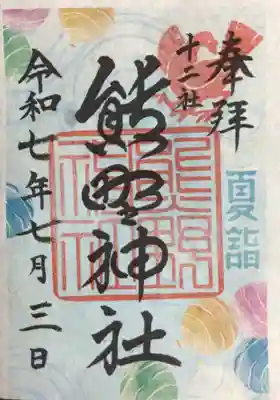 奉拝
十二社
夏詣
熊野神社
令和七年七月三日